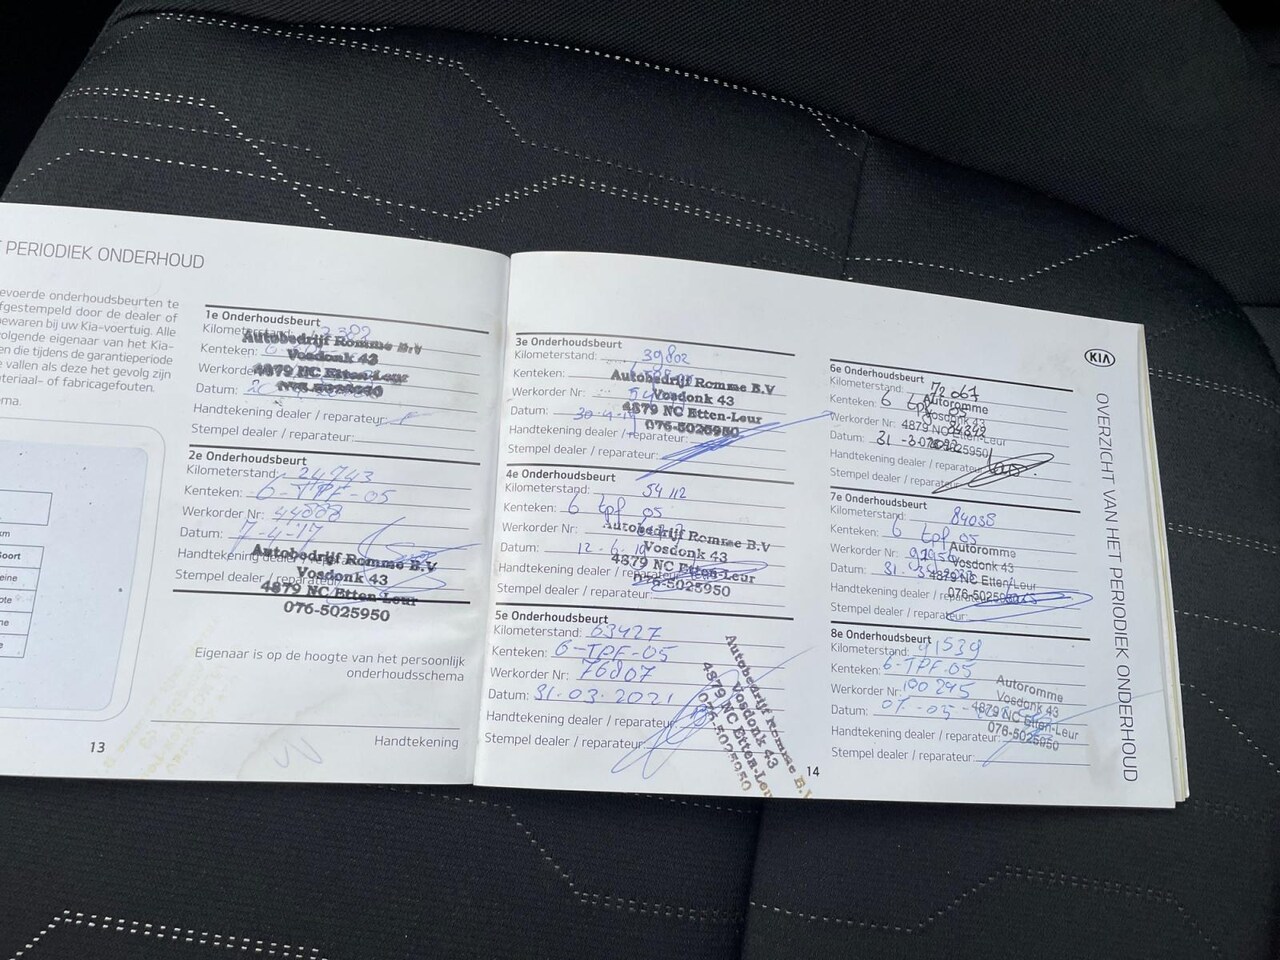 PERIODIEK ONDERHOUD
evoerde onderhoudsbeurten te
fgestempeld door de dealer of
ewaren bij uw Kia-voertuig. Alle
olgende eigenaar van het Kia-
en die tijdens de garantieperiode
vallen als deze het gevolg zijn
teriaal- of fabricagefouten.
ma.
km
oort
eine
ote
ne
1e Onderhoudsbeurt
Kilometerstand:
Kenteken:
Werkorder
Datum:
Handtekening dealer / reparateur:
Stempel dealer / reparateur:
Autobedrijf Romme B.V
Vosdonk 43
4879 NC Etten-Leur
076-5025950
2e Onderhoudsbeurt
Kilometerstand: 24743
Kenteken: 6-TPF-05
Werkorder Nr: 44888
Datum: 7-4-'17
Handtekening dealer / reparateur
Stempel dealer / reparateur
Autobedrijf Romme B.V
Vosdonk 43
4879 NC Etten-Leur
076-5025950
Eigenaar is op de hoogte van het persoonlijk
onderhoudsschema
Handtekening
13
3e Onderhoudsbeurt
Kilometerstand: 39802
Kenteken:
Werkorder Nr:
Datum: 30-4-
Handtekening dealer / reparateur:
Stempel dealer / reparateur:
Autobedrijf Romme B.V
Vosdonk 43
4879 NC Etten-Leur
076-5025950
4e Onderhoudsbeurt
Kilometerstand: 54112
Kenteken: 6 tpf 05
Werkorder Nr:
Datum: 12-6-
Handtekening dealer / reparateur
Stempel dealer / reparateur:
Autobedrijf Romme B.V
Vosdonk 43
4879 NC Etten-Leur
076-5025950
5e Onderhoudsbeurt
Kilometerstand: 63427
Kenteken: 6-TPF-05
Werkorder Nr: 76807
Datum: 31-03-2021
Handtekening dealer / reparateur
Stempel dealer / reparateur:
Autobedrijf Romme B.V
Vosdonk 43
4879 NC Etten-Leur
076-5025950
14
KIA
6e Onderhoudsbeurt
Kilometerstand: 72067
Kenteken: 6 tpf 05
Werkorder Nr:
Datum: 31-3
Handtekening dealer / reparateur
Stempel dealer / reparateur:
Autoromme
Vosdonk 43
4879 NC Etten-Leur
076-5025950
7e Onderhoudsbeurt
Kilometerstand: 84038
Kenteken: 6 tpf 05
Werkorder Nr:
Datum: 31-3
Handtekening dealer / reparateur:
Stempel dealer / reparateur:
Autoromme
Vosdonk 43
4879 NC Etten-Leur
076-5025950
8e Onderhoudsbeurt
Kilometerstand: 91539
Kenteken: 6-TPF-05
Werkorder Nr: 100295
Datum: 01-05-
Handtekening dealer / reparateur:
Stempel dealer / reparateur:
Autoromme
Vosdonk 43
4879 NC Etten-Leur
076-5025950
OVERZICHT VAN HET PERIODIEK ONDERHOUD